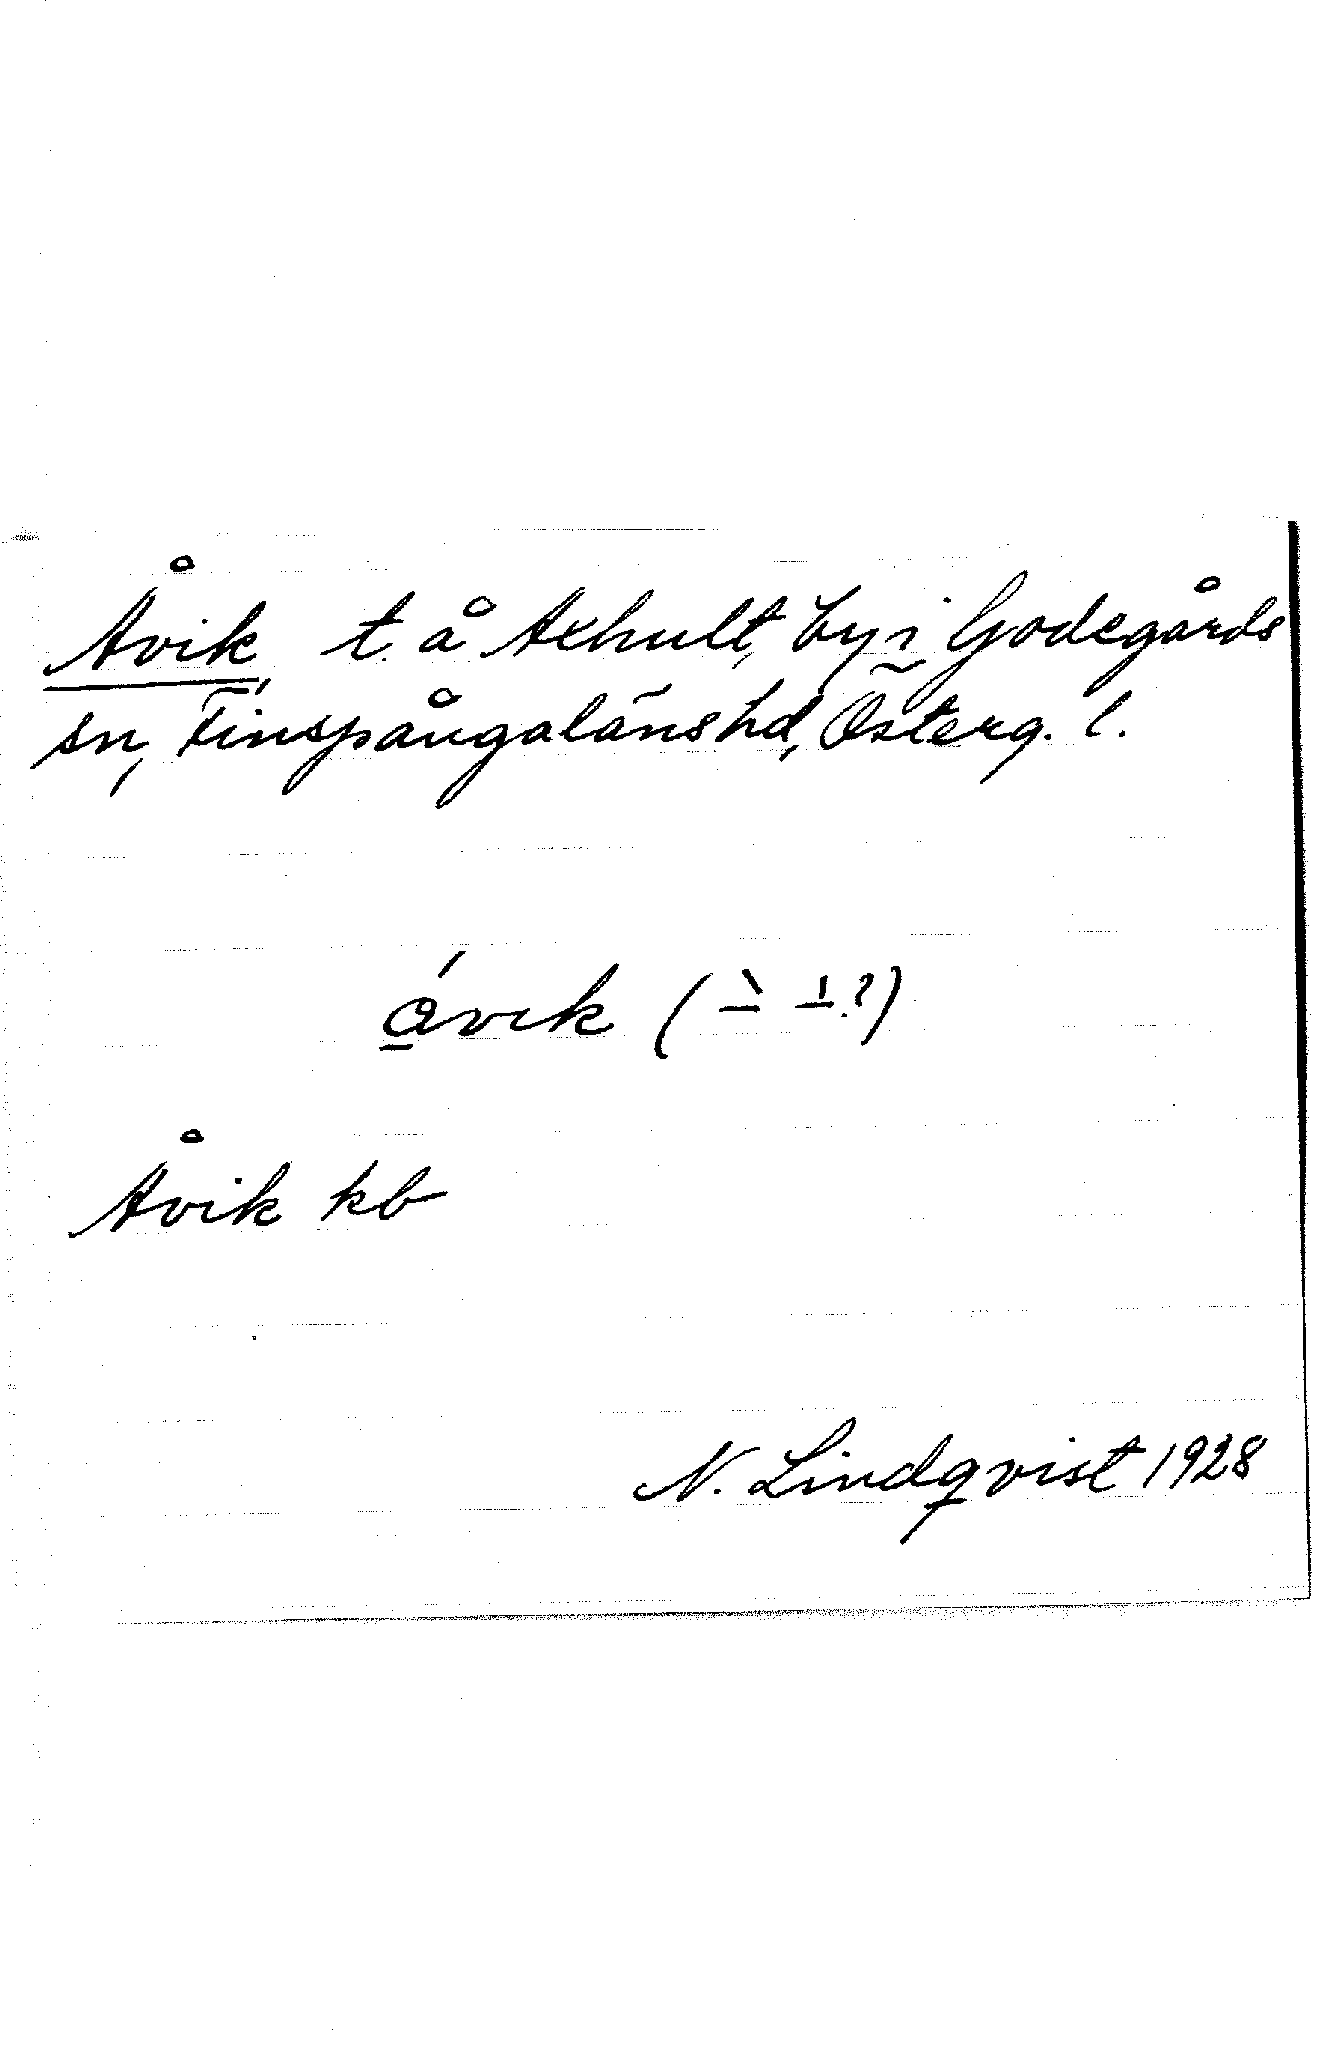 Åvik, t. å Axhult, by i Godegårds
sn, Finspångalänshd, Österg. l.
ávik (⏤̀ ⏤́.?)
Åvik kb
N. Lindqvist 1928